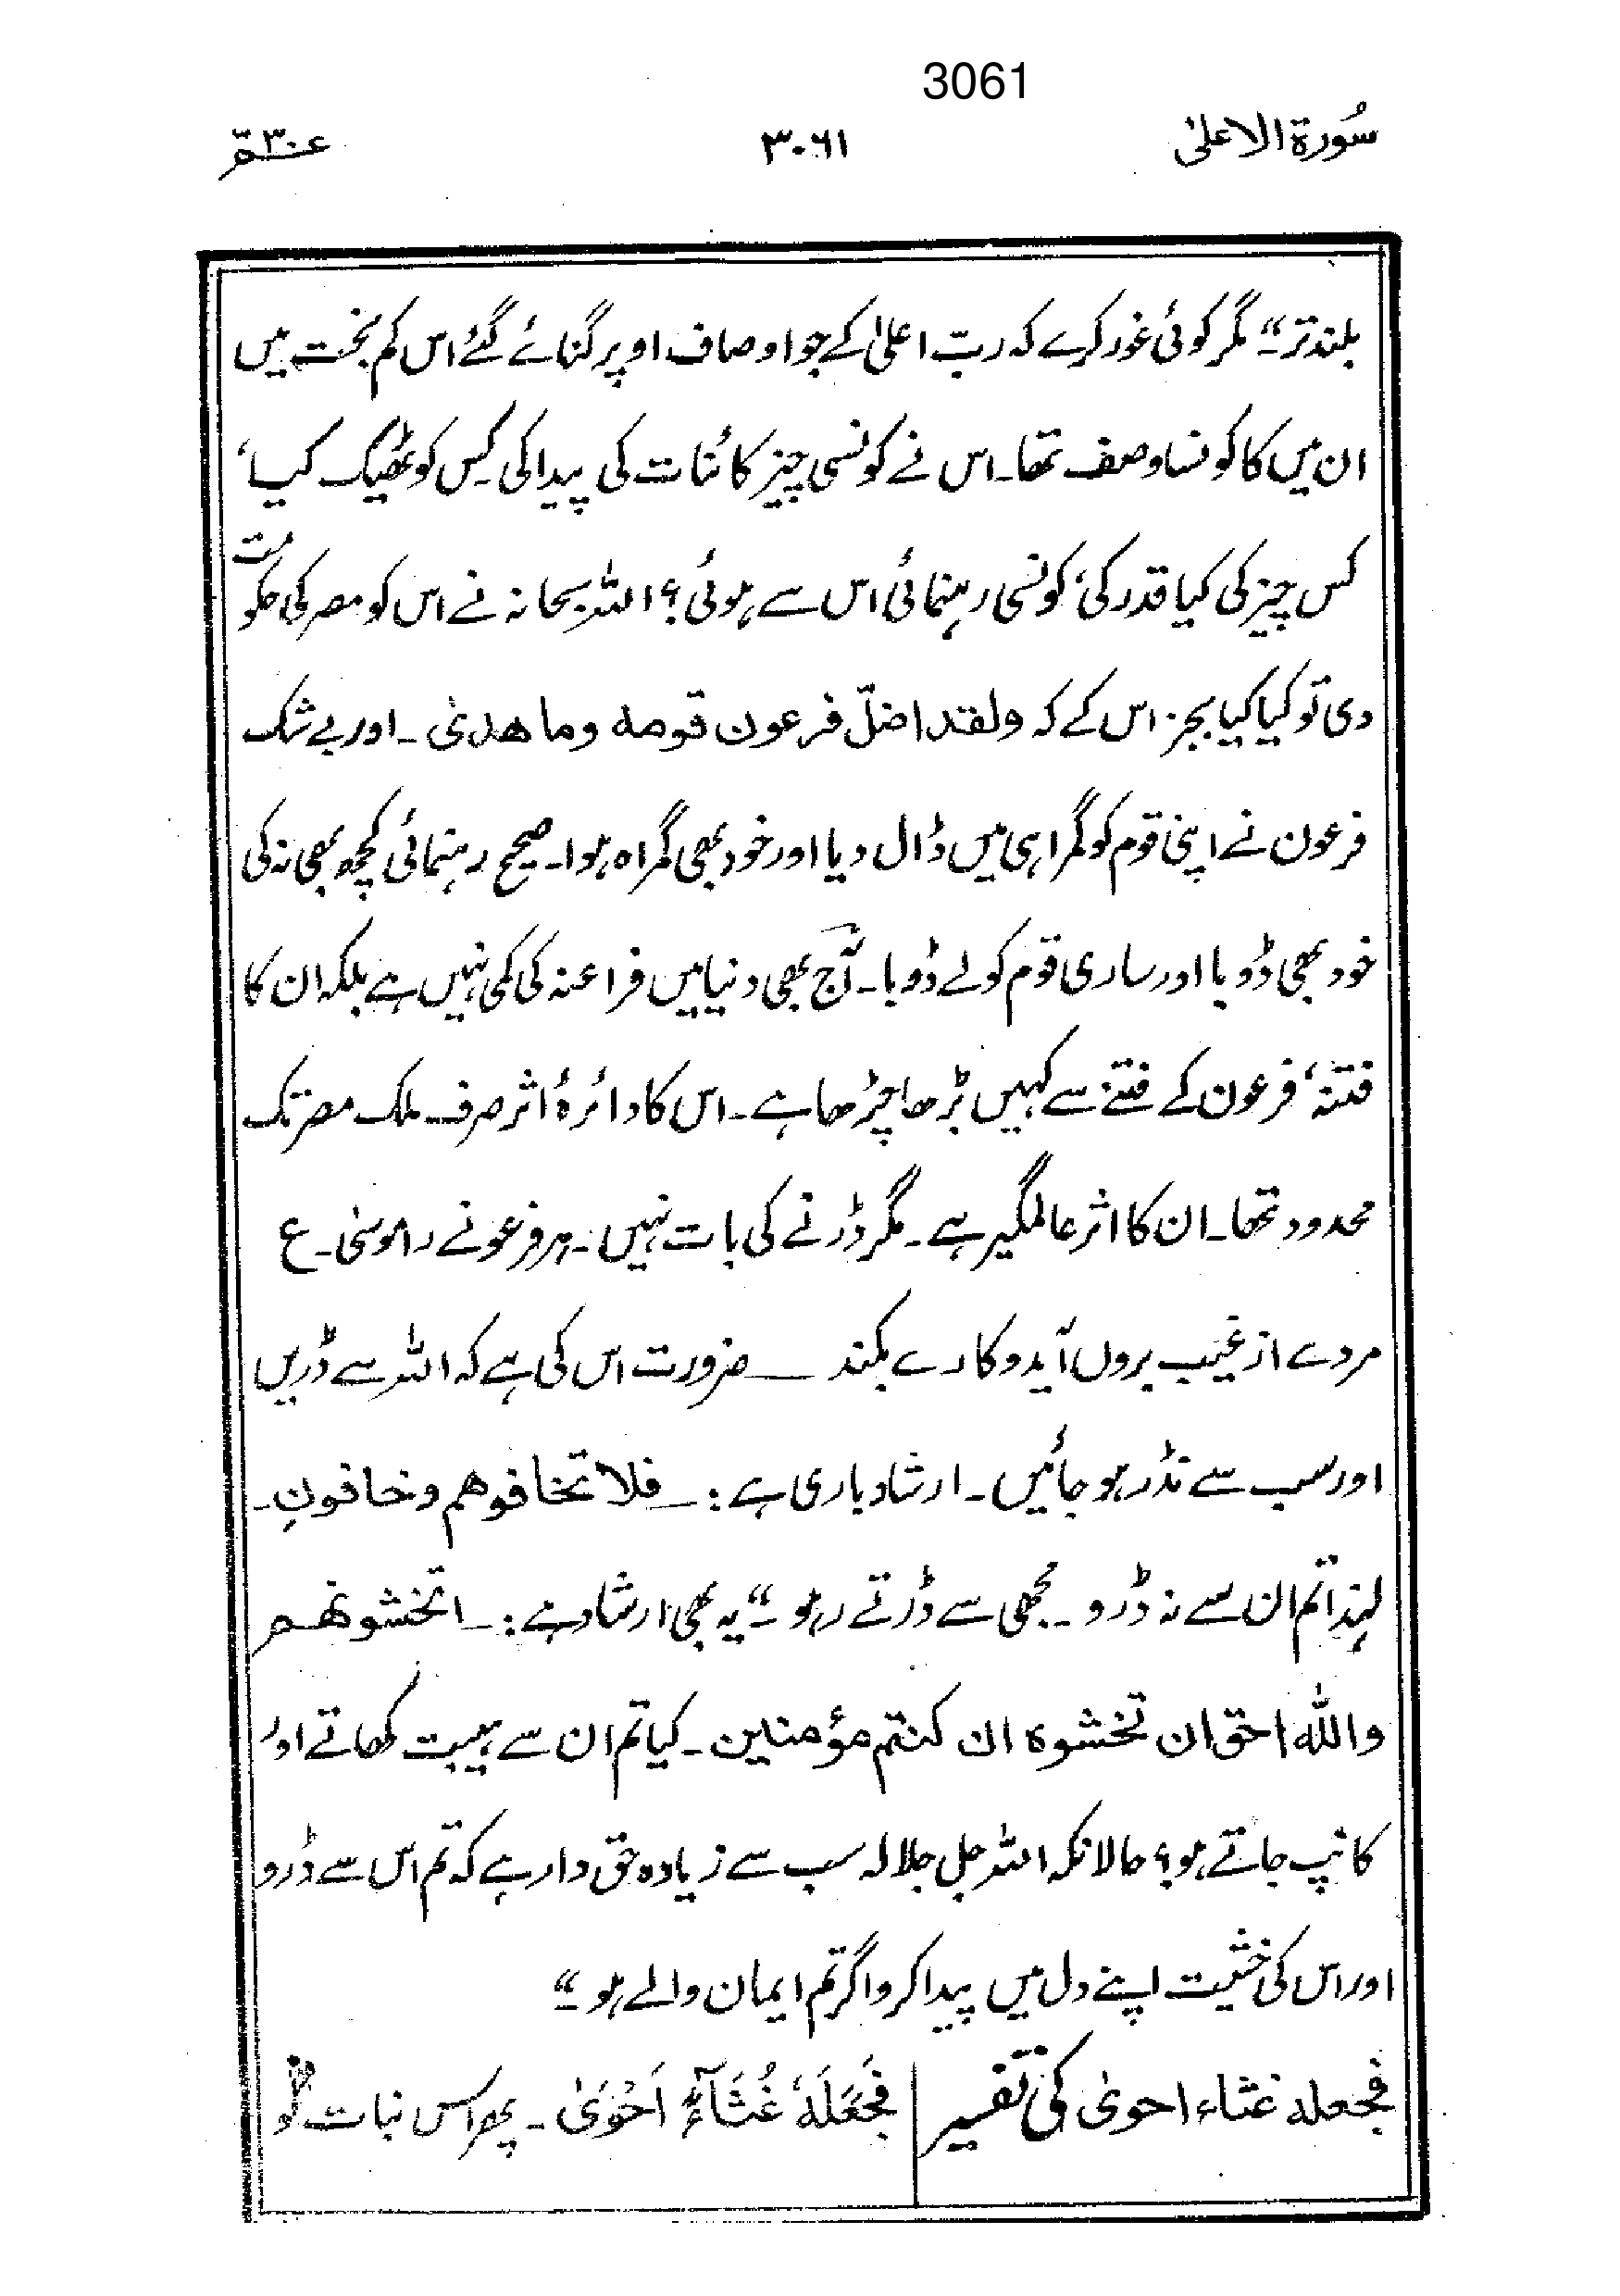 3061
سُورة الاعلیٰ ۳۰۶۱ عـم ۳۰
بلند تر“۔ مگر کوئی غور کرے کہ ربّ اعلیٰ کے جو اوصاف اوپر گنائے گئے اس کم بخت میں
ان میں کا کونسا وصف تھا۔ اس نے کونسی چیز کائنات کی پیدا کی۔ کِس کو ٹھیک کیا،
کس چیز کی کیا قدر کی، کونسی رہنمائی اس سے ہوئی؟ اللہ سبحانہ نے اس کو مصر کی حکومت
دی تو کیا کیا بجز اس کے کہ ولقد اضلّ فرعون قومه وما هدیٰ۔ اور بے شک
فرعون نے اپنی قوم کو گمراہی میں ڈال دیا اور خود بھی گمراہ ہوا۔ صحیح رہنمائی کچھ بھی نہ کی
خود بھی ڈوبا اور ساری قوم کو لے ڈوبا۔ آج بھی دنیا میں فراعنہ کی کمی نہیں ہے بلکہ ان کا
فتنہ، فرعون کے فتنے سے کہیں بڑھا چڑھا ہے۔ اس کا دائرۂ اثر صرف ملک مصر تک
محدود تھا۔ ان کا اثر عالمگیر ہے۔ مگر ڈرنے کی بات نہیں۔ ہر فرعونے را موسیٰ۔ ع
مردے از غیب بروں آید و کارے بکند ــ ضرورت اس کی ہے کہ اللہ سے ڈریں
اور سب سے نڈر ہو جائیں۔ ارشاد باری ہے :ــ فلا تخافوهم وخافونِ۔
لہٰذا تم ان سے نہ ڈرو۔ مجھی سے ڈرتے رہو“۔ یہ بھی ارشاد ہے :ــ اتخشونهم
والله احق ان تخشوه ان کنتم مؤمنین۔ کیا تم ان سے ہیبت کھاتے اور
کانپ جاتے ہو؟ حالانکہ اللہ جل جلالہ سب سے زیادہ حق دار ہے کہ تم اس سے ڈرو
اور اس کی خشیت اپنے دل میں پیدا کرو اگر تم ایمان والے ہو“۔
فجعله غثاء احویٰ کی تفسیر | فَجَعَلَهٗ غُثَآءً اَحْوَیٰ۔ پھر اس نبات کو